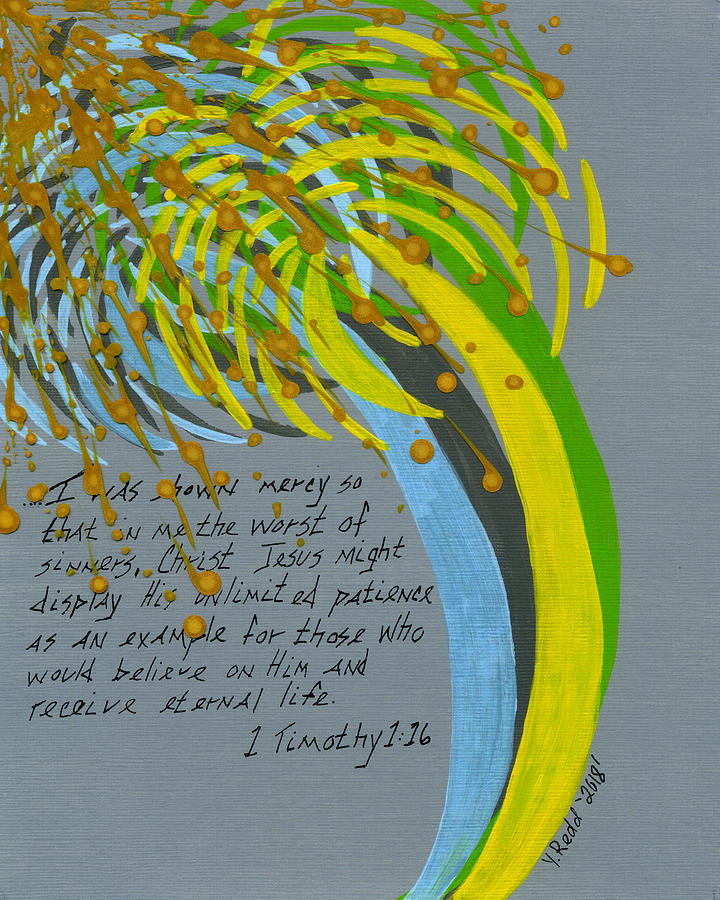 ....I was shown mercy so
that in me the worst of
sinners, Christ Jesus might
display His unlimited patience
as an example for those who
would believe on Him and
receive eternal life.
1 Timothy 1:16
Y. Redd '2018'